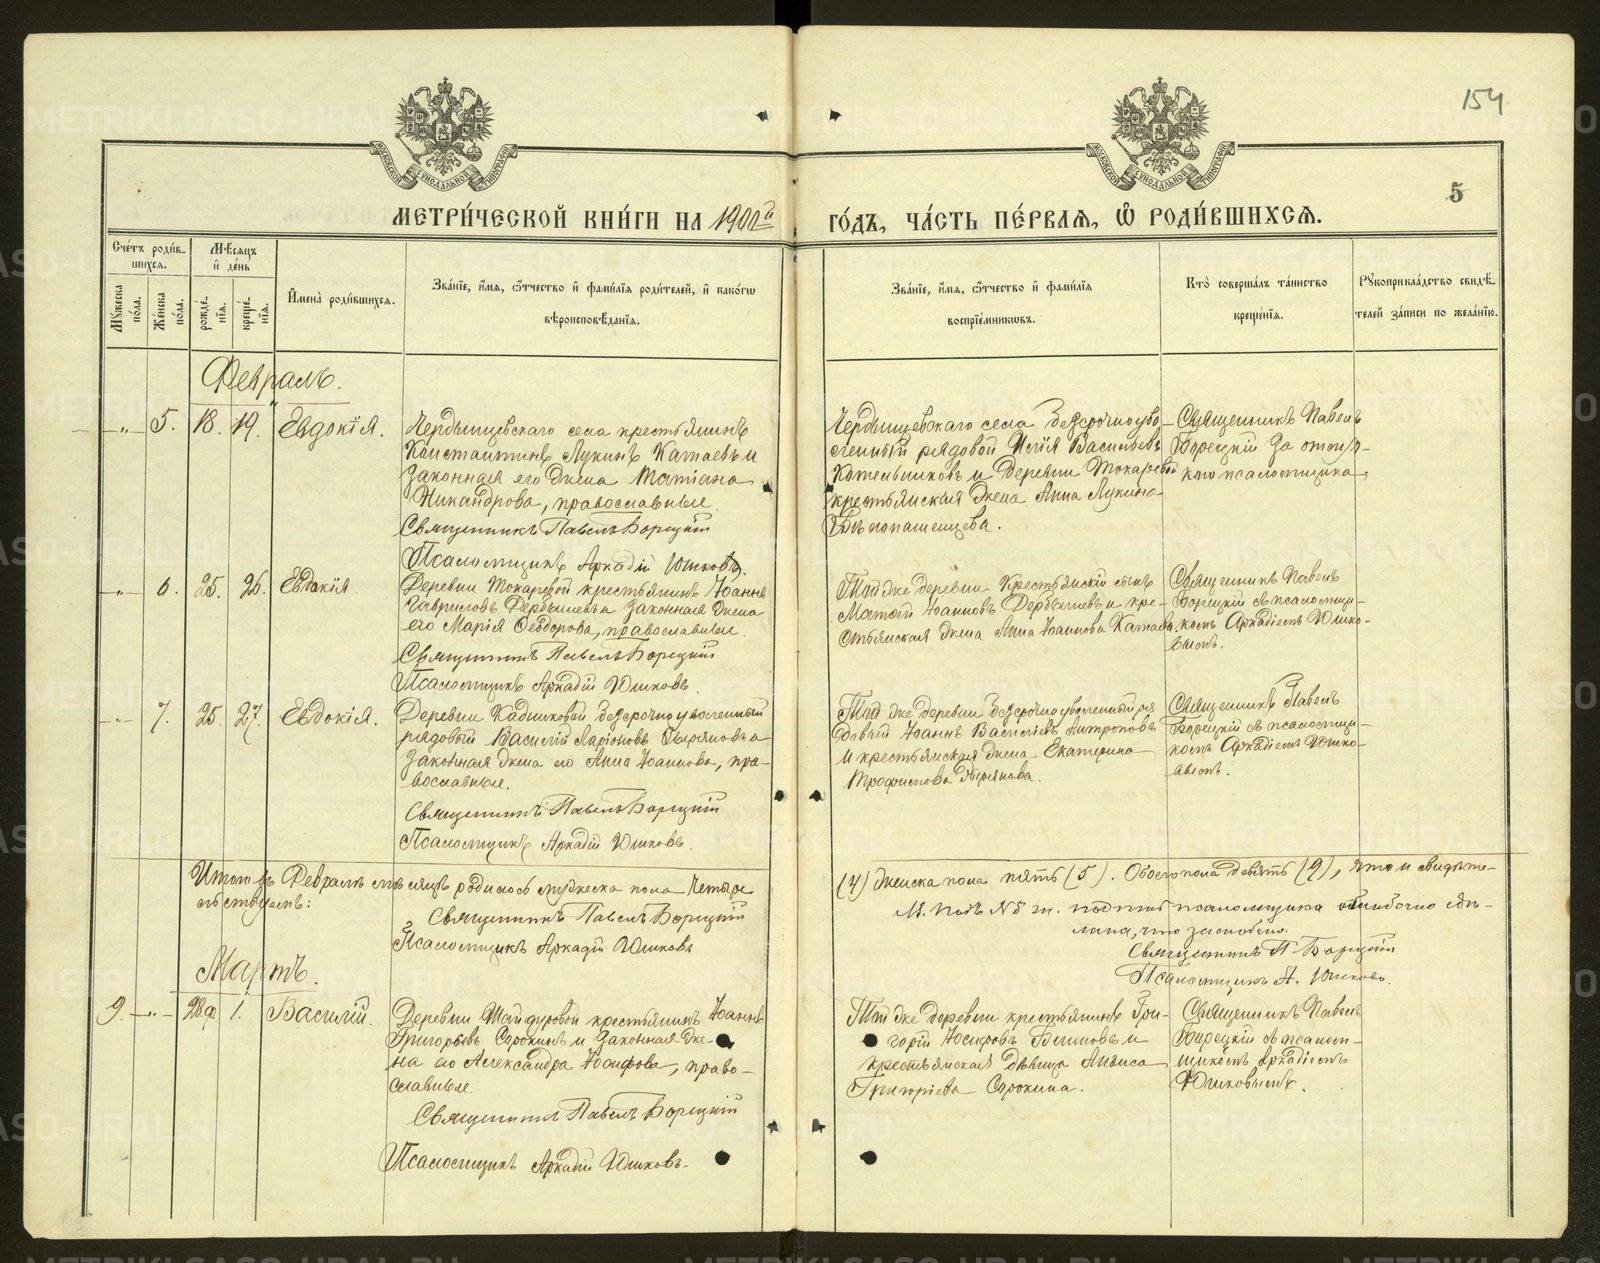 154
5
МОСКОВСКОЙ СѴНОДАЛЬНОЙ ТИПОГРАФІИ
МОСКОВСКОЙ СѴНОДАЛЬНОЙ ТИПОГРАФІИ
МЕТРИ́ЧЕСКОЙ КНИ́ГИ НА 1900й
ГО́ДЪ, ЧА́СТЬ ПЕ́РВАѦ, Ѽ РОДИ́ВШИХСѦ.
Сче́тъ роди́в-
шихсѧ.
Мѣсѧцъ
и҆ де́нь
Мꙋжеска по́ла.
Же́нска по́ла.
рожде́-
нїѧ.
креще́-
нїѧ.
И҆мена̀ роди́вшихсѧ.
Зва́нїе, и҆́мѧ, ѻ҆́тчество и҆ фами́лїѧ роди́телей, и҆ како́гѡ
вѣроисповѣ́данїѧ.
Зва́нїе, и҆́мѧ, ѻ҆́тчество и҆ фами́лїѧ
воспрїе́мникѡвъ.
Кто̀ соверша́лъ та́инство
креще́нїѧ.
Рꙋкоприкла́дство свидѣ́-
телей за́писи по жела́нїю.
Февраль.
-„- 5. 18. 19. Евдокія.
села крестьянинъ
Константинъ Лукинъ Катаевъ и
законная его жена Татіана
Никандрова, православные.
Священникъ Павелъ Борецкій
Псаломщикъ Аркадій Юшковъ.
села безсрочноуво-
ленный рядовой Исаія Васильевъ
Котельниковъ и деревни Токаревой
крестьянская жена Анна Лукина
Священникъ Павелъ
Борецкій за отпус-
комъ псаломщика.
-„- 6. 25. 26. Евдокія.
Деревни Токаревой крестьянинъ Іоаннъ
Гавриловъ Дербышевъ и законная жена
его Марія Ѳеодорова, православные.
Священникъ Павелъ Борецкій
Псаломщикъ Аркадій Юшковъ.
Той же деревни крестьянскій сынъ
Матѳій Іоанновъ Дербышевъ и кре-
стьянская жена Анна Іоаннова Катаева.
Священникъ Павелъ
Борецкій съ псаломщи-
комъ Аркадіемъ Юшко-
вымъ.
-„- 7. 25. 27. Евдокія.
Деревни Кадниковой безсрочноуволенный
рядовый Василій Ларіоновъ и
законная жена его Анна Іоаннова, пра-
вославные.
Священникъ Павелъ Борецкій
Псаломщикъ Аркадій Юшковъ.
Той же деревни безсрочноуволенный ря
довый Іоаннъ Васильевъ Антроповъ
и крестьянская жена Екатерина
Трофимова
Священникъ Павелъ
Борецкій съ псаломщи-
комъ Аркадіемъ Юшко-
вымъ.
Итого въ Февралѣ мѣсяцѣ родилось мужеска пола четыре
(4) женска пола пять (5). Обоего пола девять (9), въ томъ свидѣте-
льствуемъ:
Священникъ Павелъ Борецкій
Псаломщикъ Аркадій Юшковъ
подъ № 5 ж. подпись псаломщика ошибочно сдѣ-
лана,
Священникъ П. Борецкій
Псаломщикъ А. Юшковъ.
Мартъ.
9. -„- 28ф 1. Василій.
Деревни Шайдуровой крестьянинъ Іоаннъ
Григорьевъ Сорокинъ и законная же-
на его Александра Іосифова, право-
славные.
Священникъ Павелъ Борецкій
Псаломщикъ Аркадій Юшковъ.
Той же деревни крестьянинъ Гри-
горій Іосифовъ и
крестьянская дѣвица Аниса
Григоріева Сорокина.
Священникъ Павелъ
Борецкій съ псалом-
щикомъ Аркадіемъ
Юшковымъ.
METRIKI.GASO-URAL.RU